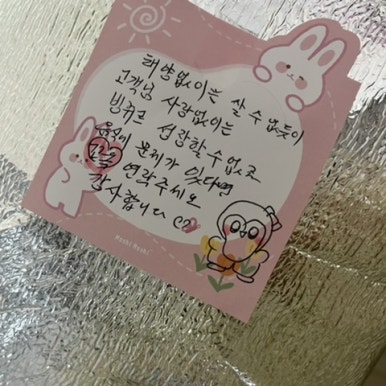 태양없이는 살 수 없듯이
고객님 사랑없이는
빙쿠르 성장할 수 없고
음식에 문제가 있다면
연락주세요
감사합니다